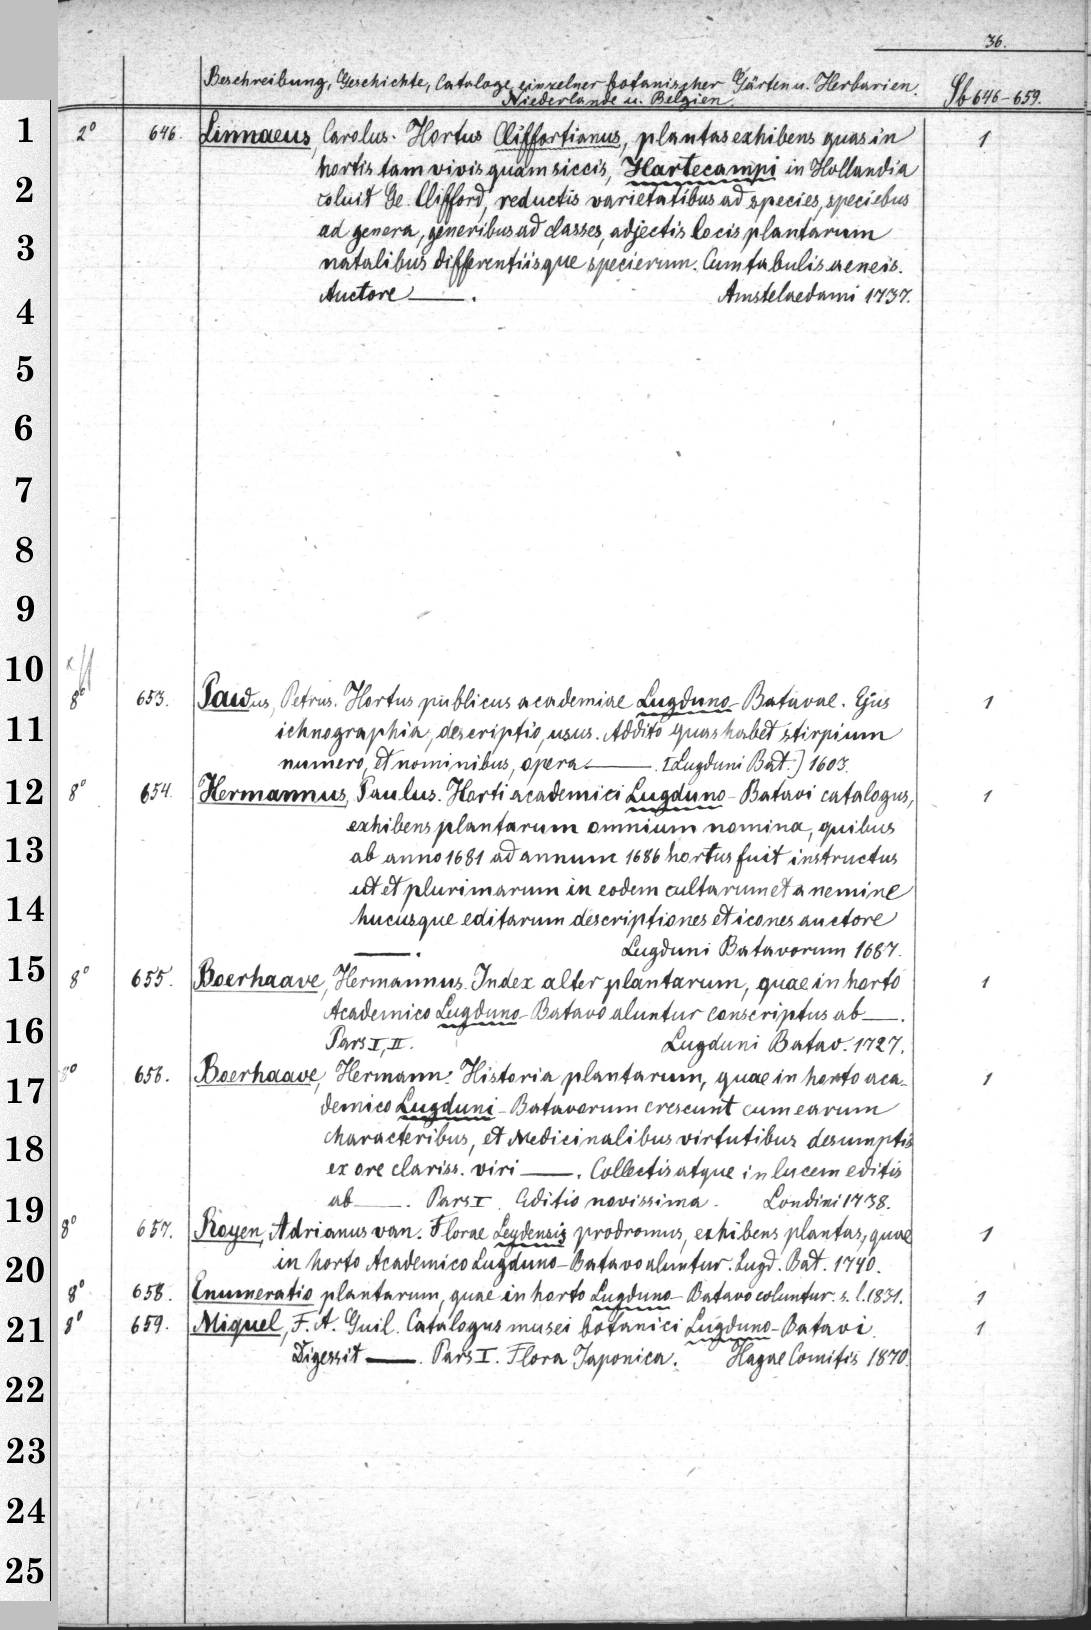 36.
Beschreibung, Geschichte, Cataloge einzelner botanischer Gärten u. Herbarien.
Niederlande u. Belgien
Sb 646-659.
1
2° 646. Linnaeus, Carolus. Hortus Cliffortianus, plantas exhibens quas in 1
hortis tam vivis quam siccis, Hartecampi in Hollandia
2
coluit Ge. Clifford, reductis varietatibus ad species, speciebus
ad genera, generibus ad classes, adjectis locis plantarum
3
natalibus differentiisque specierum. Cum tabulis aeneis.
Auctore —. Amstelaedami 1737.
4
5
6
7
8
9
10
8° 653. Pawus, Petrus. Hortus publicus academiae Lugduno-Batavae. Ejus 1
11
ichnographia, descriptio, usus. Addito quas habet stirpium
numero, et nominibus, opera —. [Lugduni Bat.] 1603.
12
8° 654. Hermannus, Paulus. Horti academici Lugduno-Batavi catalogus, 1
exhibens plantarum omnium nomina, quibus
13
ab anno 1681 ad annum 1686 hortus fuit instructus
ut et plurimarum in eodem cultarum et a nemine
14
hucusque editarum descriptiones et icones auctore
—. Lugduni Batavorum 1687.
15
8° 655. Boerhaave, Hermannus. Index alter plantarum, quae in horto 1
Academico Lugduno-Batavo aluntur conscriptus ab —.
16
Pars I, II. Lugduni Batav. 1727.
8° 656. Boerhaave, Hermann. Historia plantarum, quae in horto aca- 1
17
demico Lugduni-Batavorum crescunt cum earum
characteribus, et medicinalibus virtutibus desumptis
18
ex ore clariss. viri —. Collectis atque in lucem editis
ab —. Pars I. Editio novissima. Londini 1738.
19
8° 657. Royen, Adrianus van. Florae Leydensis prodromus, exhibens plantas, quae 1
in horto Academico Lugduno-Batavo aluntur. Lugd. Bat. 1740.
20
8° 658. Enumeratio plantarum, quae in horto Lugduno-Batavo coluntur. s. l. 1831. 1
21
8° 659. Miquel, F. A. Guil. Catalogus musei botanici Lugduno-Batavi. 1
Digessit —. Pars I. Flora Japonica. Hagae Comitis 1870.
22
23
24
25